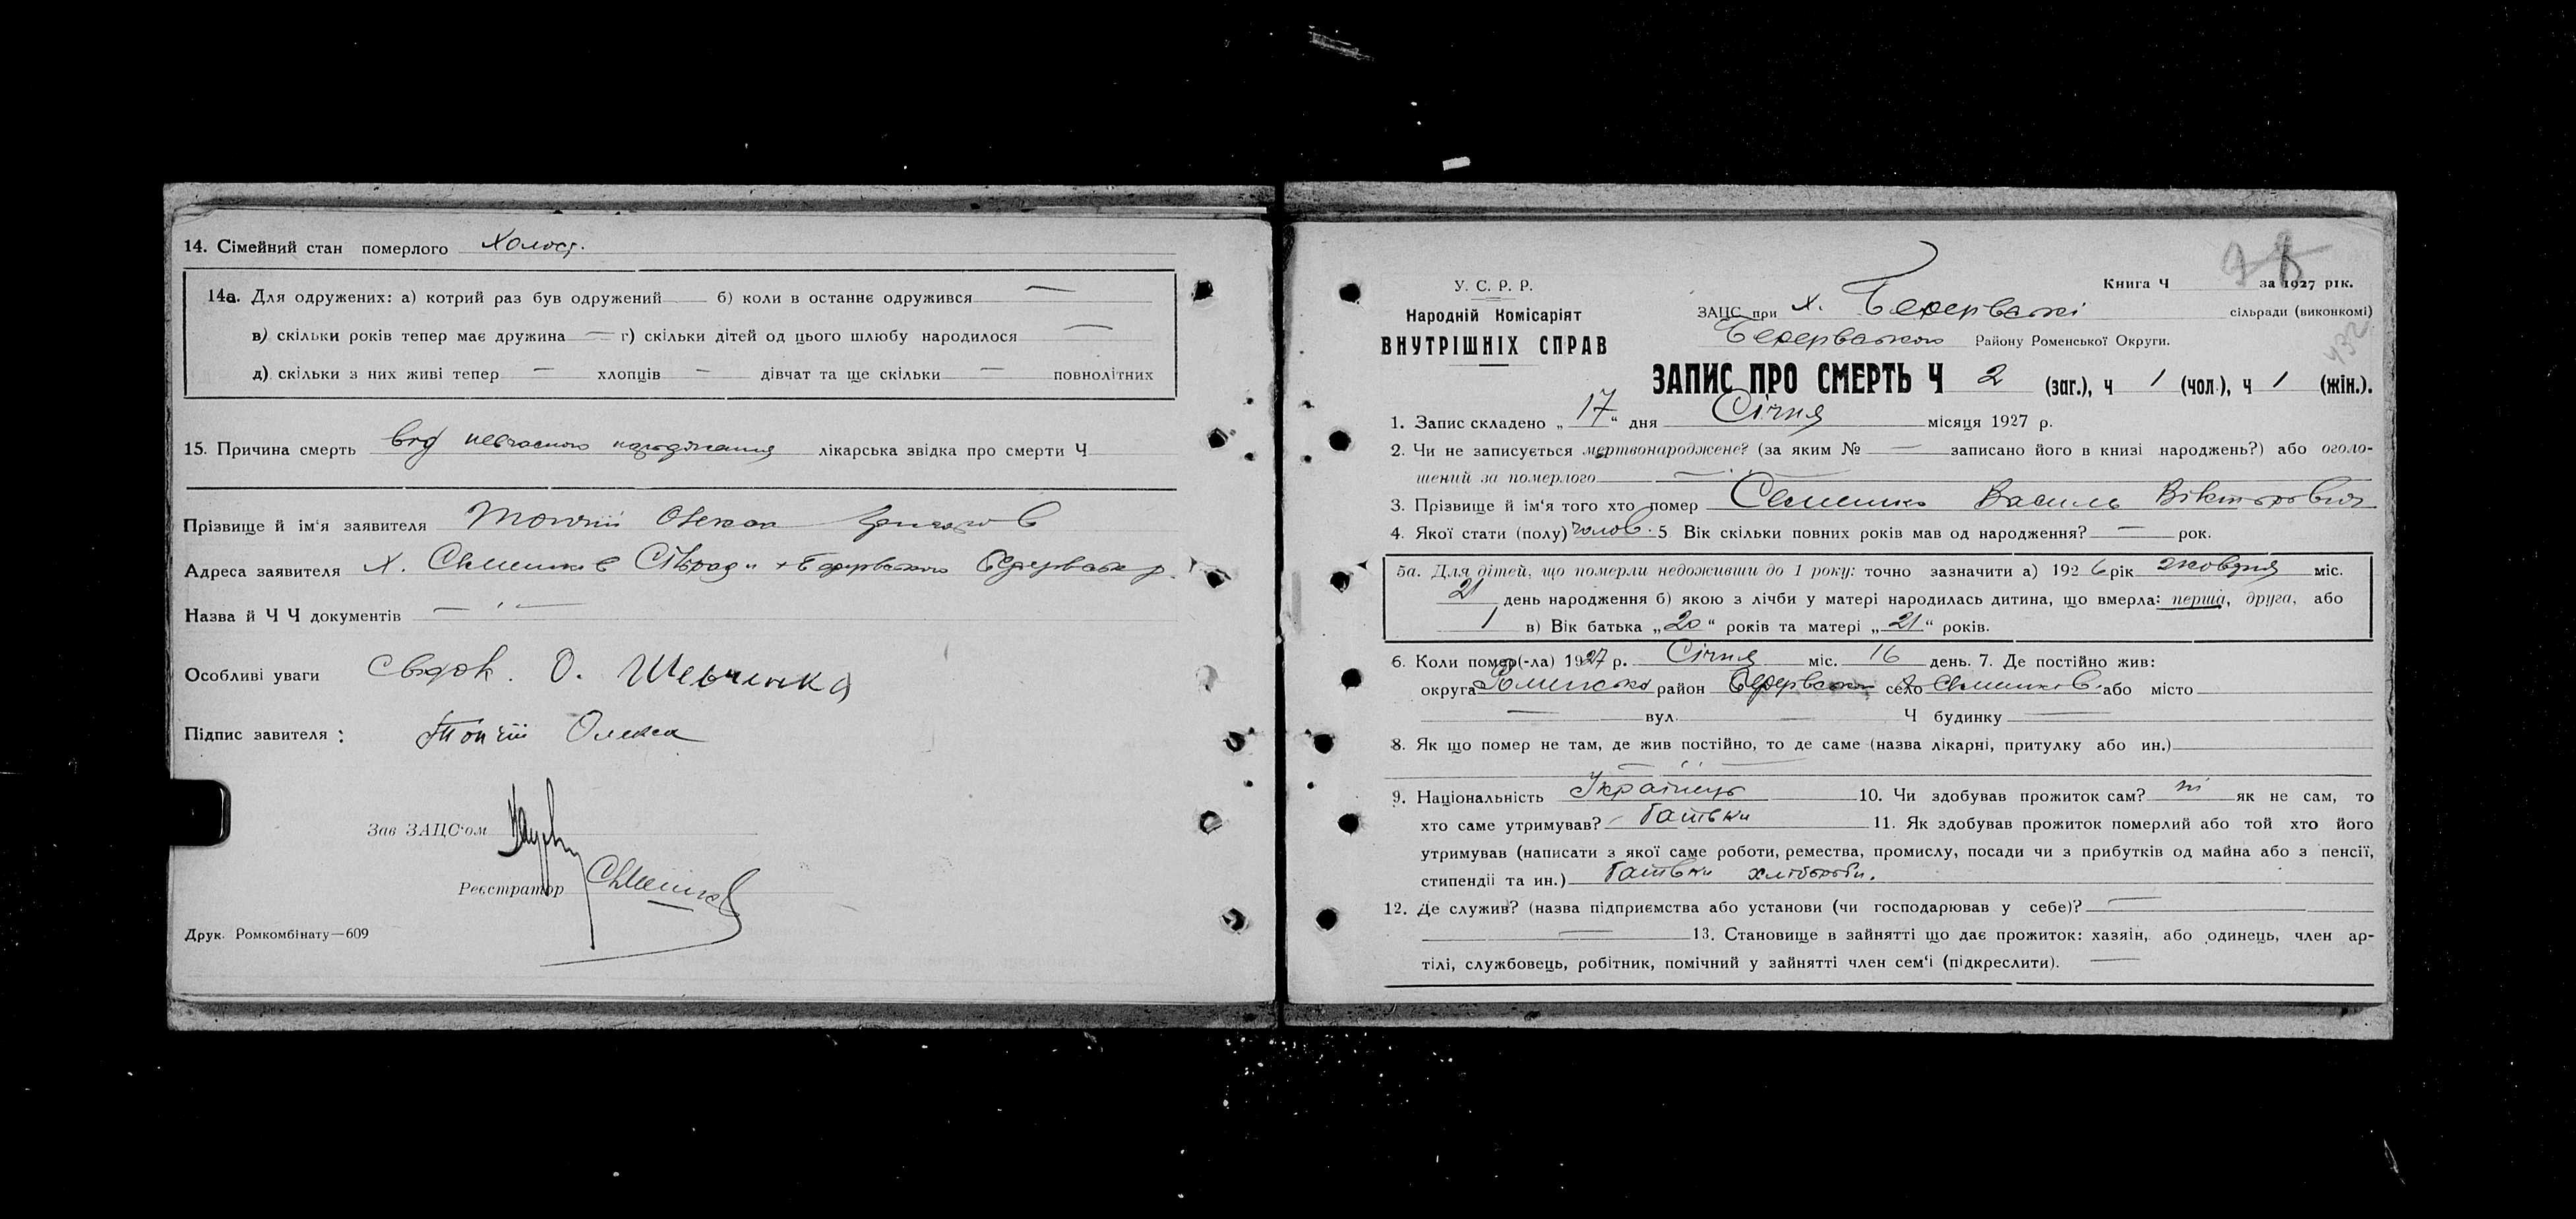 14. Сімейний стан померлого Холост.
14а. Для одружених: а) котрий раз був одружений — б) коли в останнє одружився —
в) скільки років тепер має дружина — г) скільки дітей од цього шлюбу народилося —
д) скільки з них живі тепер — хлопців — дівчат та ще скільки — повнолітних
15. Причина смерть від невчасного народження лікарська звідка про смерти Ч
Прізвище й ім'я заявителя Топчій Олекса
Адреса заявителя х. Семенків
Назва й Ч Ч документів —
Особливі уваги Свідок. О. Шевченка
Підпис завителя: Топчій Олекса
Зав ЗАЦС'ом
Реєстратор
Друк. Ромкомбінату—609
У. С. Р. Р.
Народній Комісаріят
ВНУТРІШНІХ СПРАВ
Книга Ч за 1927 рік.
ЗАЦС при х. сільради (виконкомі)
Району Роменської Округи.
432
ЗАПИС ПРО СМЕРТЬ Ч 2 (заг.), ч 1 (чол.), ч 1 (жін.).
1. Запис складено „17" дня Січня місяця 1927 р.
2. Чи не записується мертвонароджене? (за яким № — записано його в книзі народжень?) або оголо-
шений за померлого —
3. Прізвище й ім'я того хто помер Семенко Василь Вікторович
4. Якої стати (полу) чолов. 5 Вік скільки повних років мав од народження? — рок.
5а. Для дітей, що померли недоживши до 1 року: точно зазначити а) 1926 рік жовтня міс.
21 день народження б) якою з лічби у матері народилась дитина, що вмерла: перша, друга, або
1 в) Вік батька „20" років та матері „21" років.
6. Коли помер(-ла) 1927 р. Січня міс. 16 день. 7. Де постійно жив:
округа Роменська район село х Семенків або місто
— вул. — Ч будинку —
8. Як що помер не там, де жив постійно, то де саме (назва лікарні, притулку або ин.)
9. Національність Українець 10. Чи здобував прожиток сам? ні як не сам, то
хто саме утримував? батьки 11. Як здобував прожиток померлий або той хто його
утримував (написати з якої саме роботи, ремества, промислу, посади чи з прибутків од майна або з пенсії,
стипендії та ин.) батьки хлібороби.
12. Де служив? (назва підприємства або установи (чи господарював у себе)? —
— 13. Становище в зайнятті що дає прожиток: хазяін, або одинець, член ар-
тілі, службовець, робітник, помічний у зайнятті член сем'ї (підкреслити). —